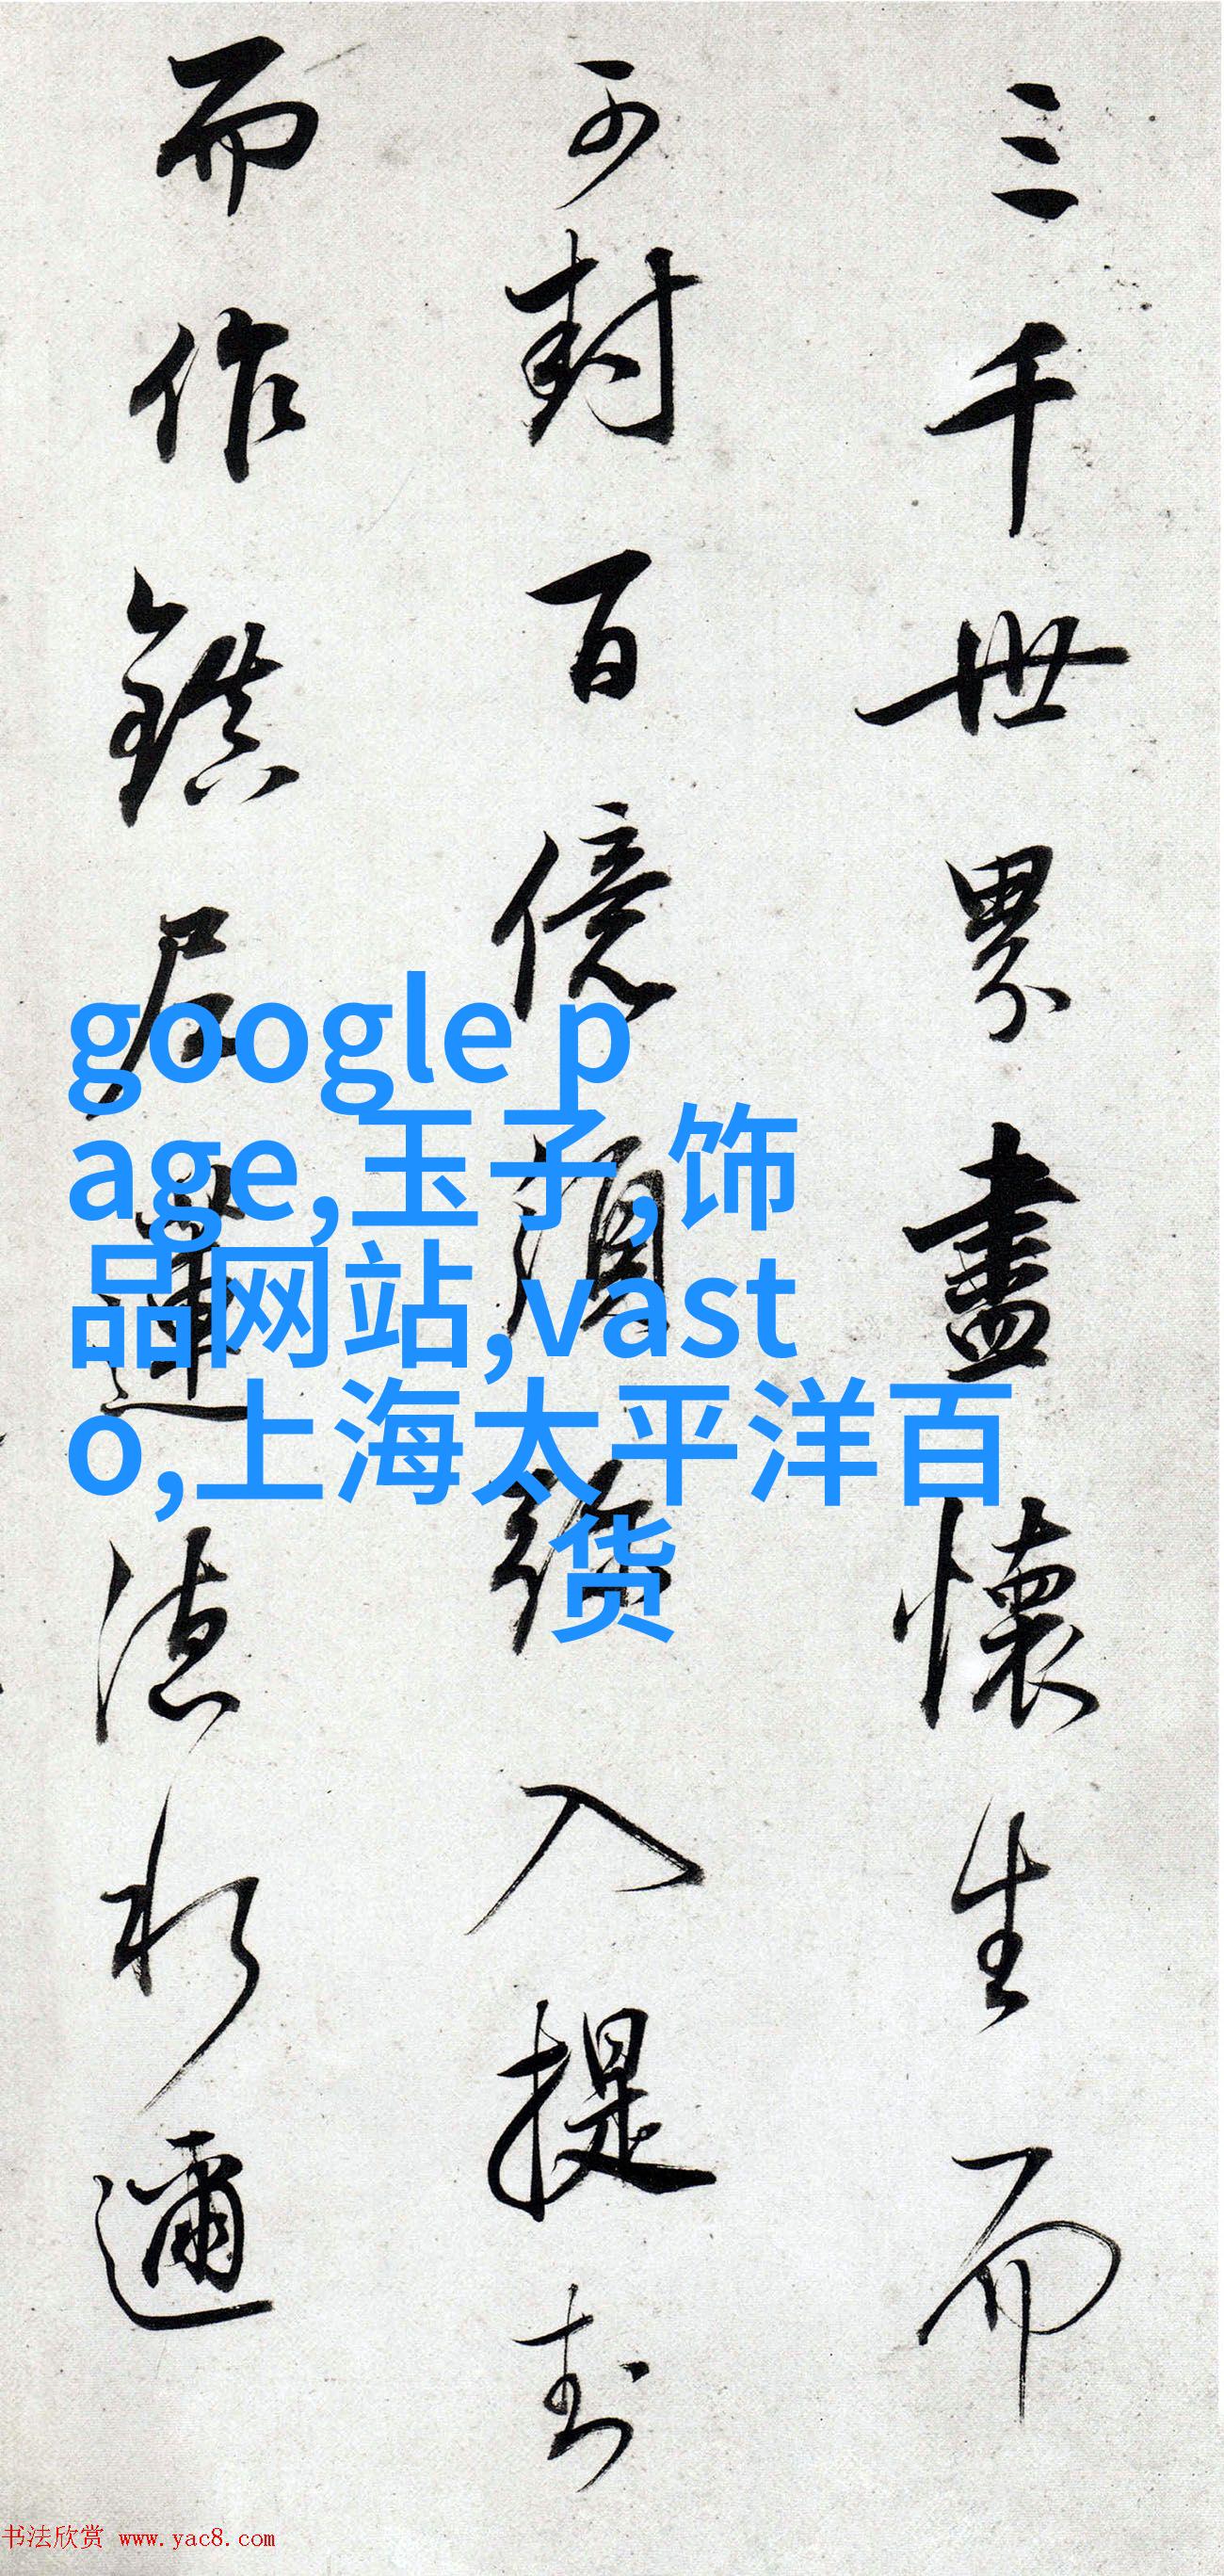 三千世界盡懷生而
可封百億須弥入提封
而作鎮尼蓮德水邇
google p
age,玉子,饰
品网站,vast
o,上海太平洋百
货
书法欣赏 www.yac8.com